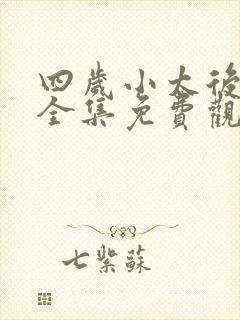 四歲小太後
全集免費觀
七紫蘇